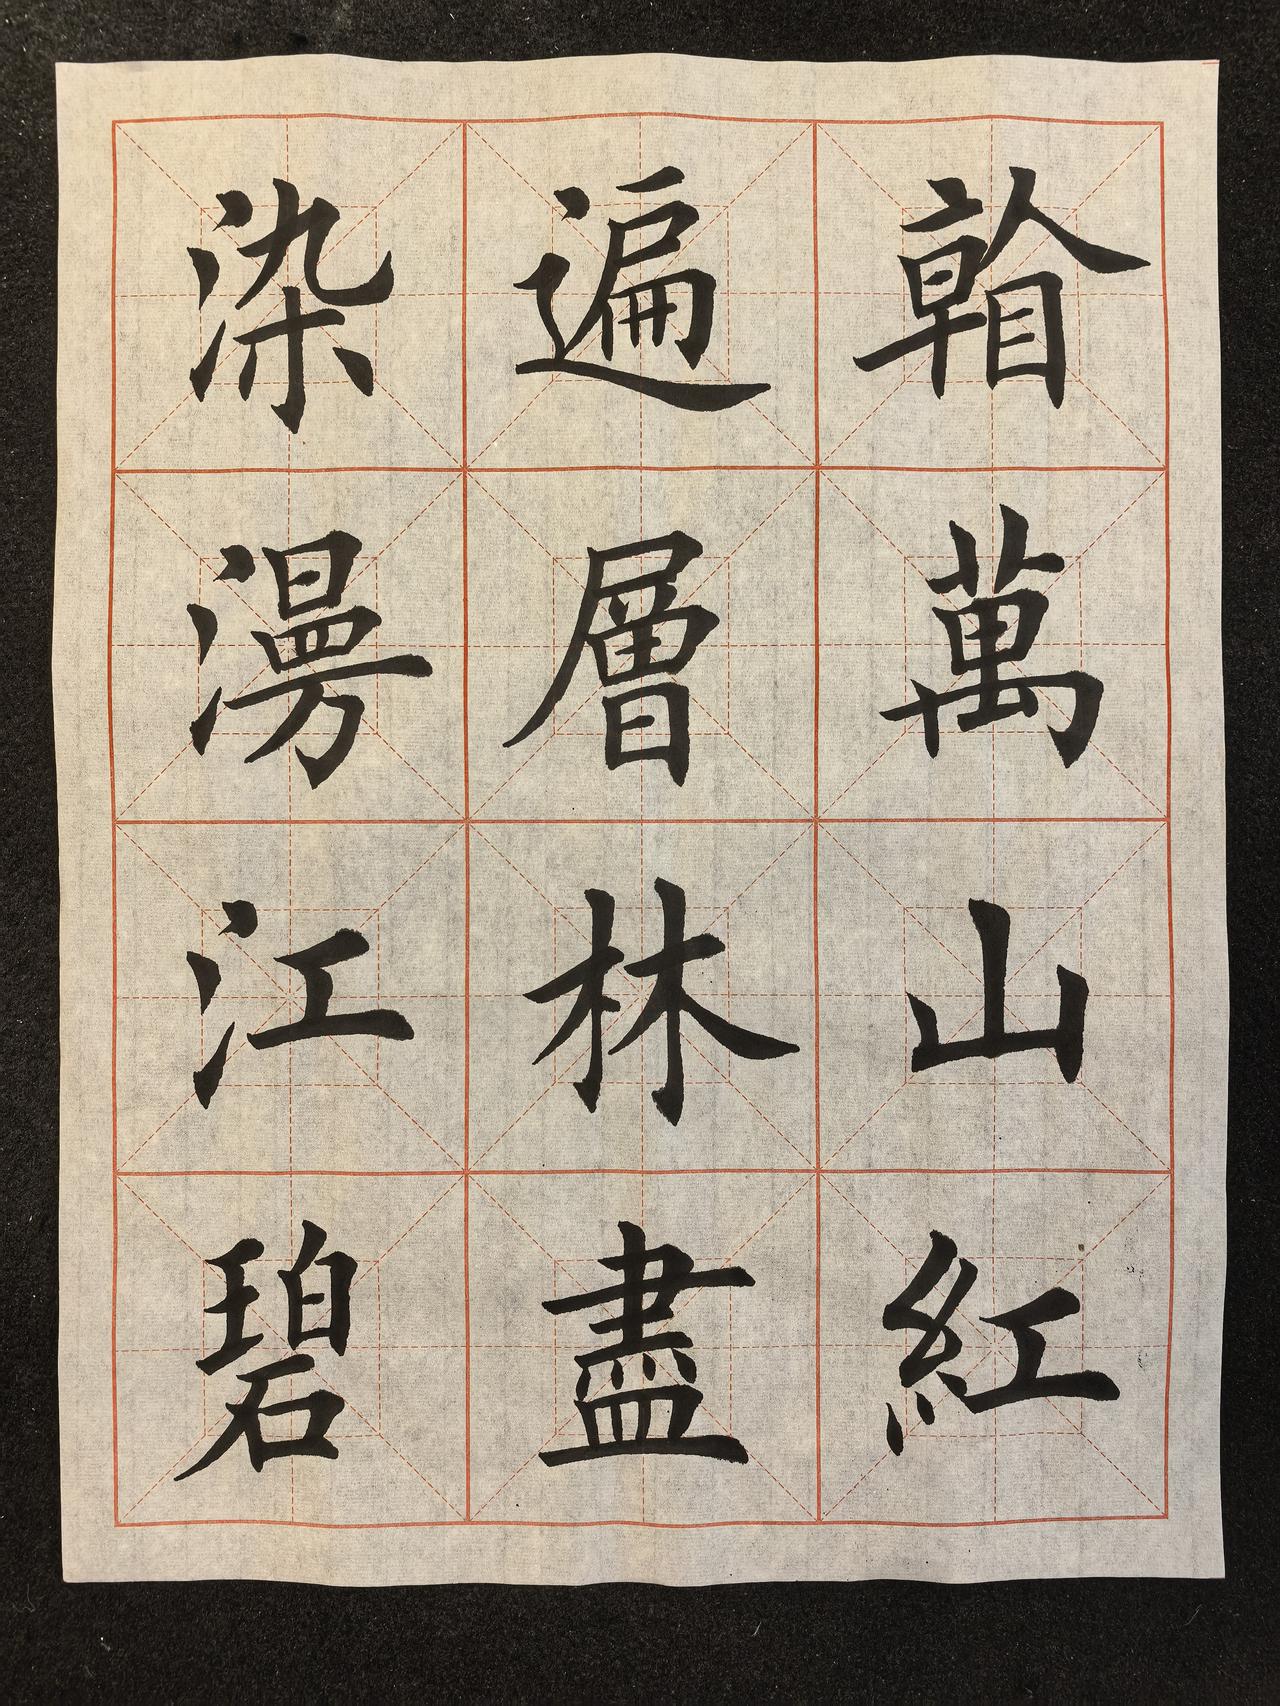 看萬山紅
遍層林盡
染漫江碧